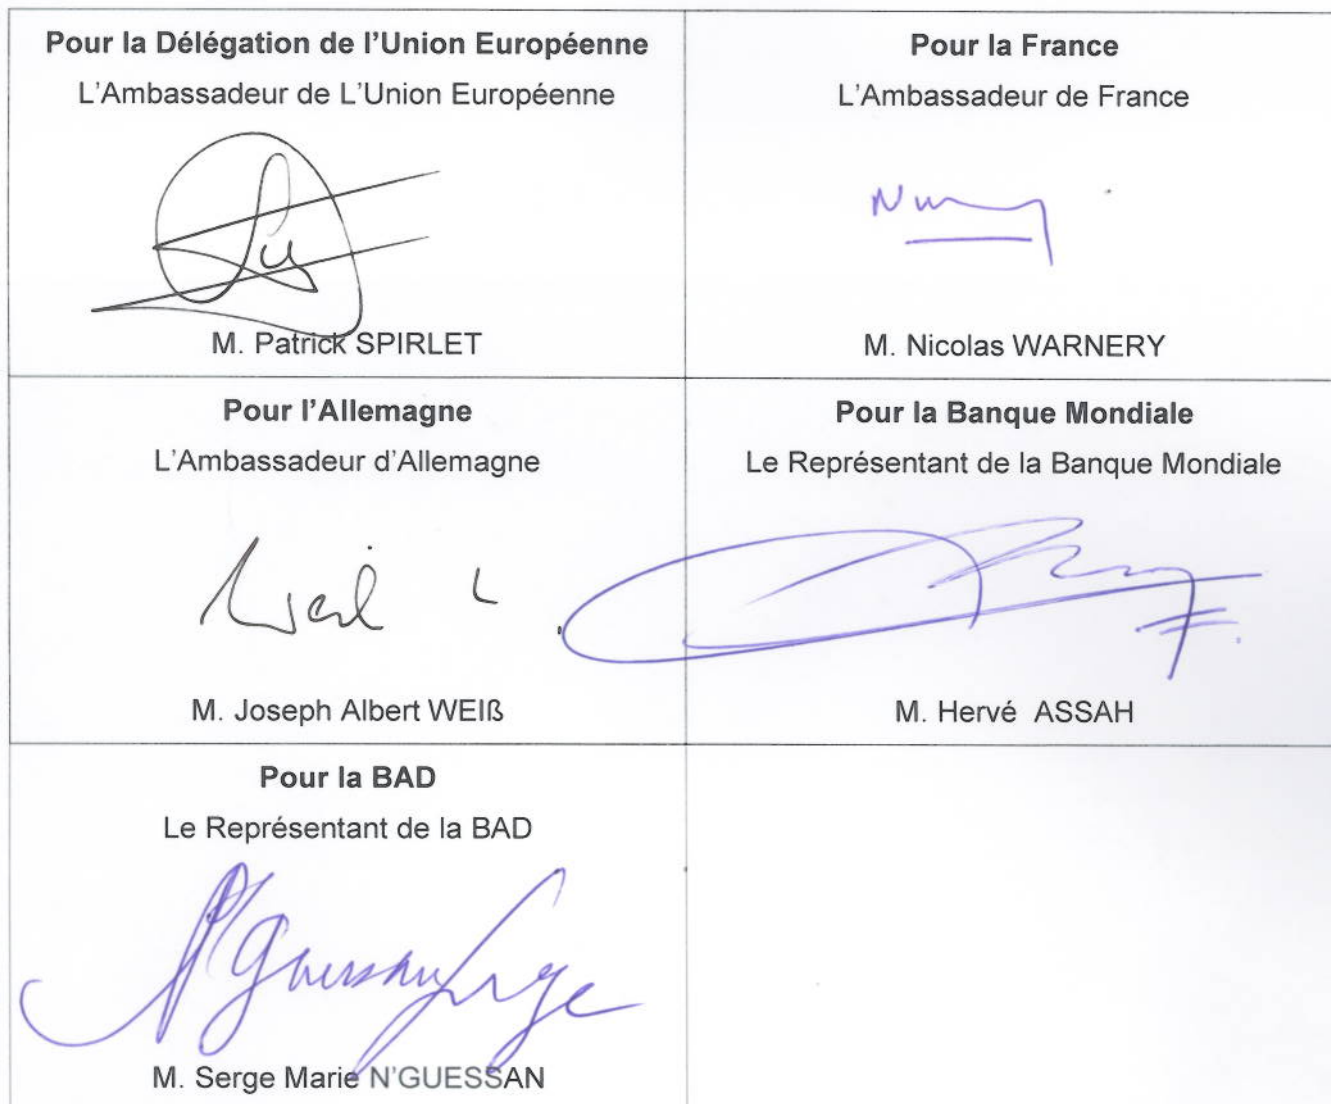 Pour la Délégation de l'Union Européenne
L'Ambassadeur de L'Union Européenne
M. Patrick SPIRLET
Pour la France
L'Ambassadeur de France
M. Nicolas WARNERY
Pour l'Allemagne
L'Ambassadeur d'Allemagne
M. Joseph Albert WEIß
Pour la Banque Mondiale
Le Représentant de la Banque Mondiale
M. Hervé ASSAH
Pour la BAD
Le Représentant de la BAD
N'Guessan Serge
M. Serge Marie N'GUESSAN